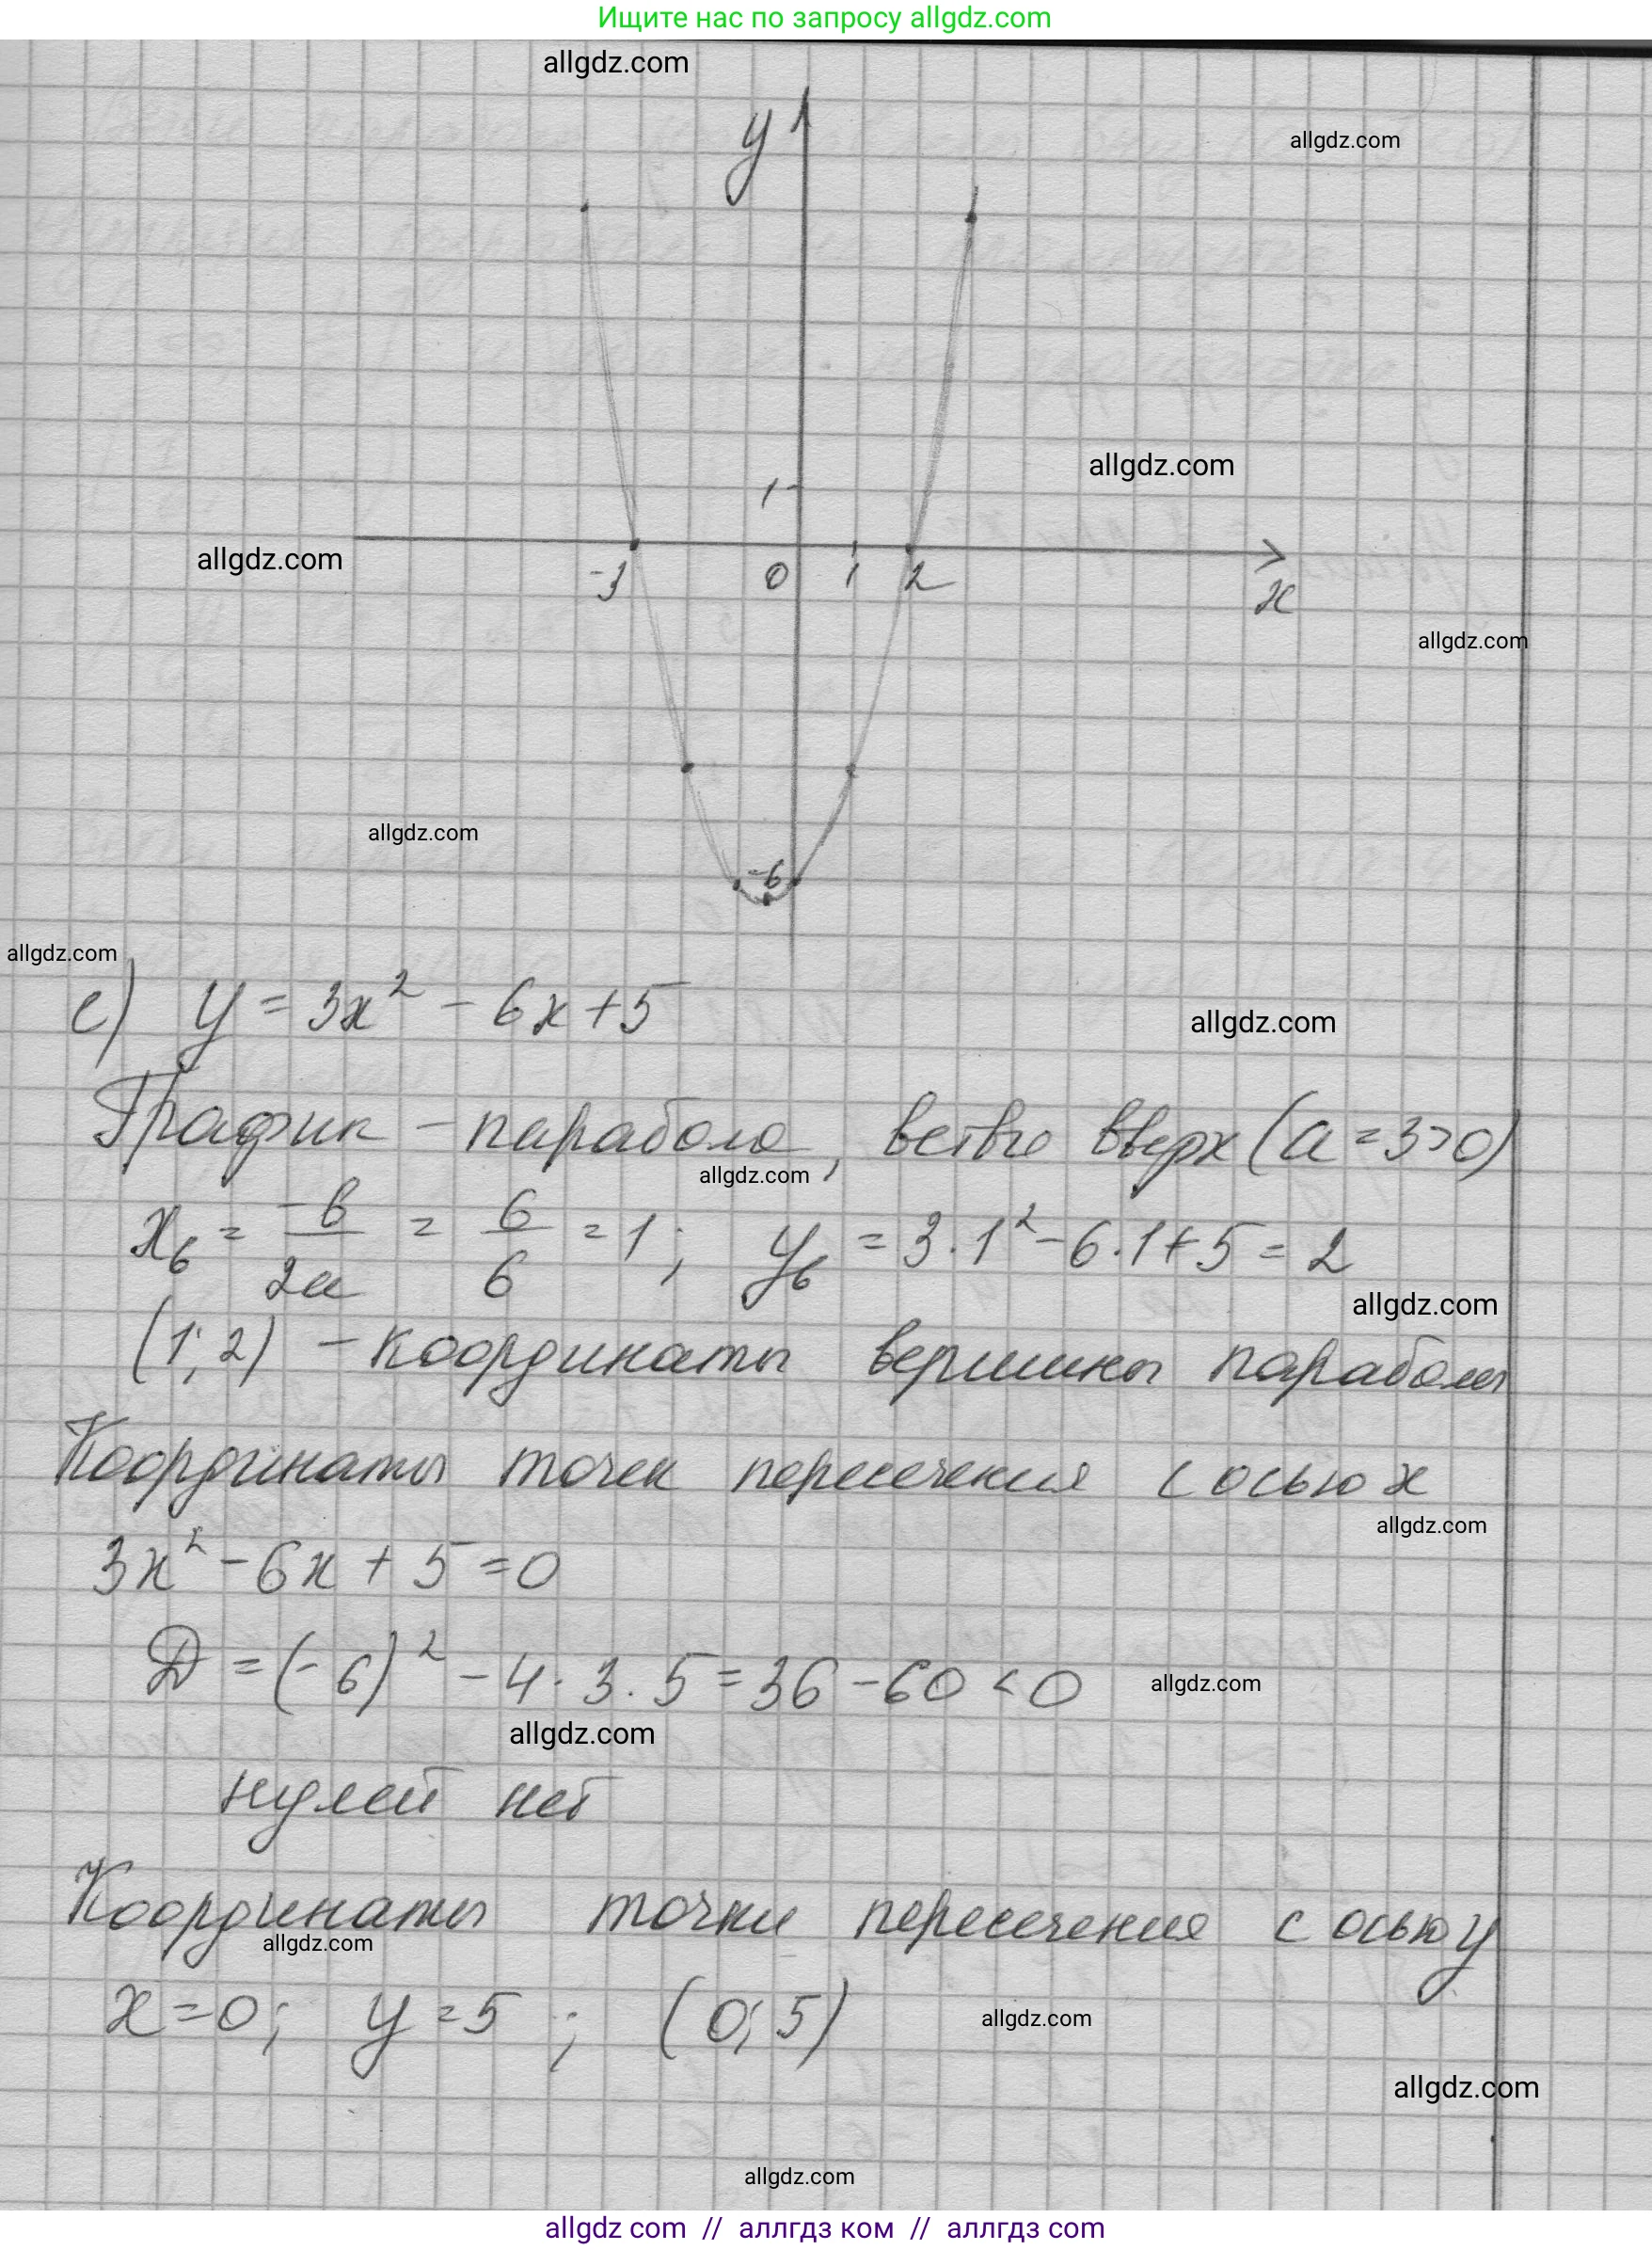 Ищите нас по запросу allgdz.com
allgdz.com
y
allgdz.com
allgdz.com
1
allgdz.com
-3 0 1 2
x
allgdz.com
allgdz.com
-6
allgdz.com
е) y = 3x² - 6x + 5
allgdz.com
График - парабола, ветви вверх (a = 3 > 0)
allgdz.com
xв = -b/2a = 6/6 = 1; yв = 3 · 1² - 6 · 1 + 5 = 2
allgdz.com
(1; 2) - координаты вершины параболы
Координаты точек пересечения с осью x
allgdz.com
3x² - 6x + 5 = 0
D = (-6)² - 4 · 3 · 5 = 36 - 60 < 0
allgdz.com
allgdz.com
нулей нет
Координаты точки пересечения с осью y
allgdz.com
x = 0; y = 5; (0; 5)
allgdz.com
allgdz.com
allgdz.com
allgdz com // аллгдз ком // аллгдз com